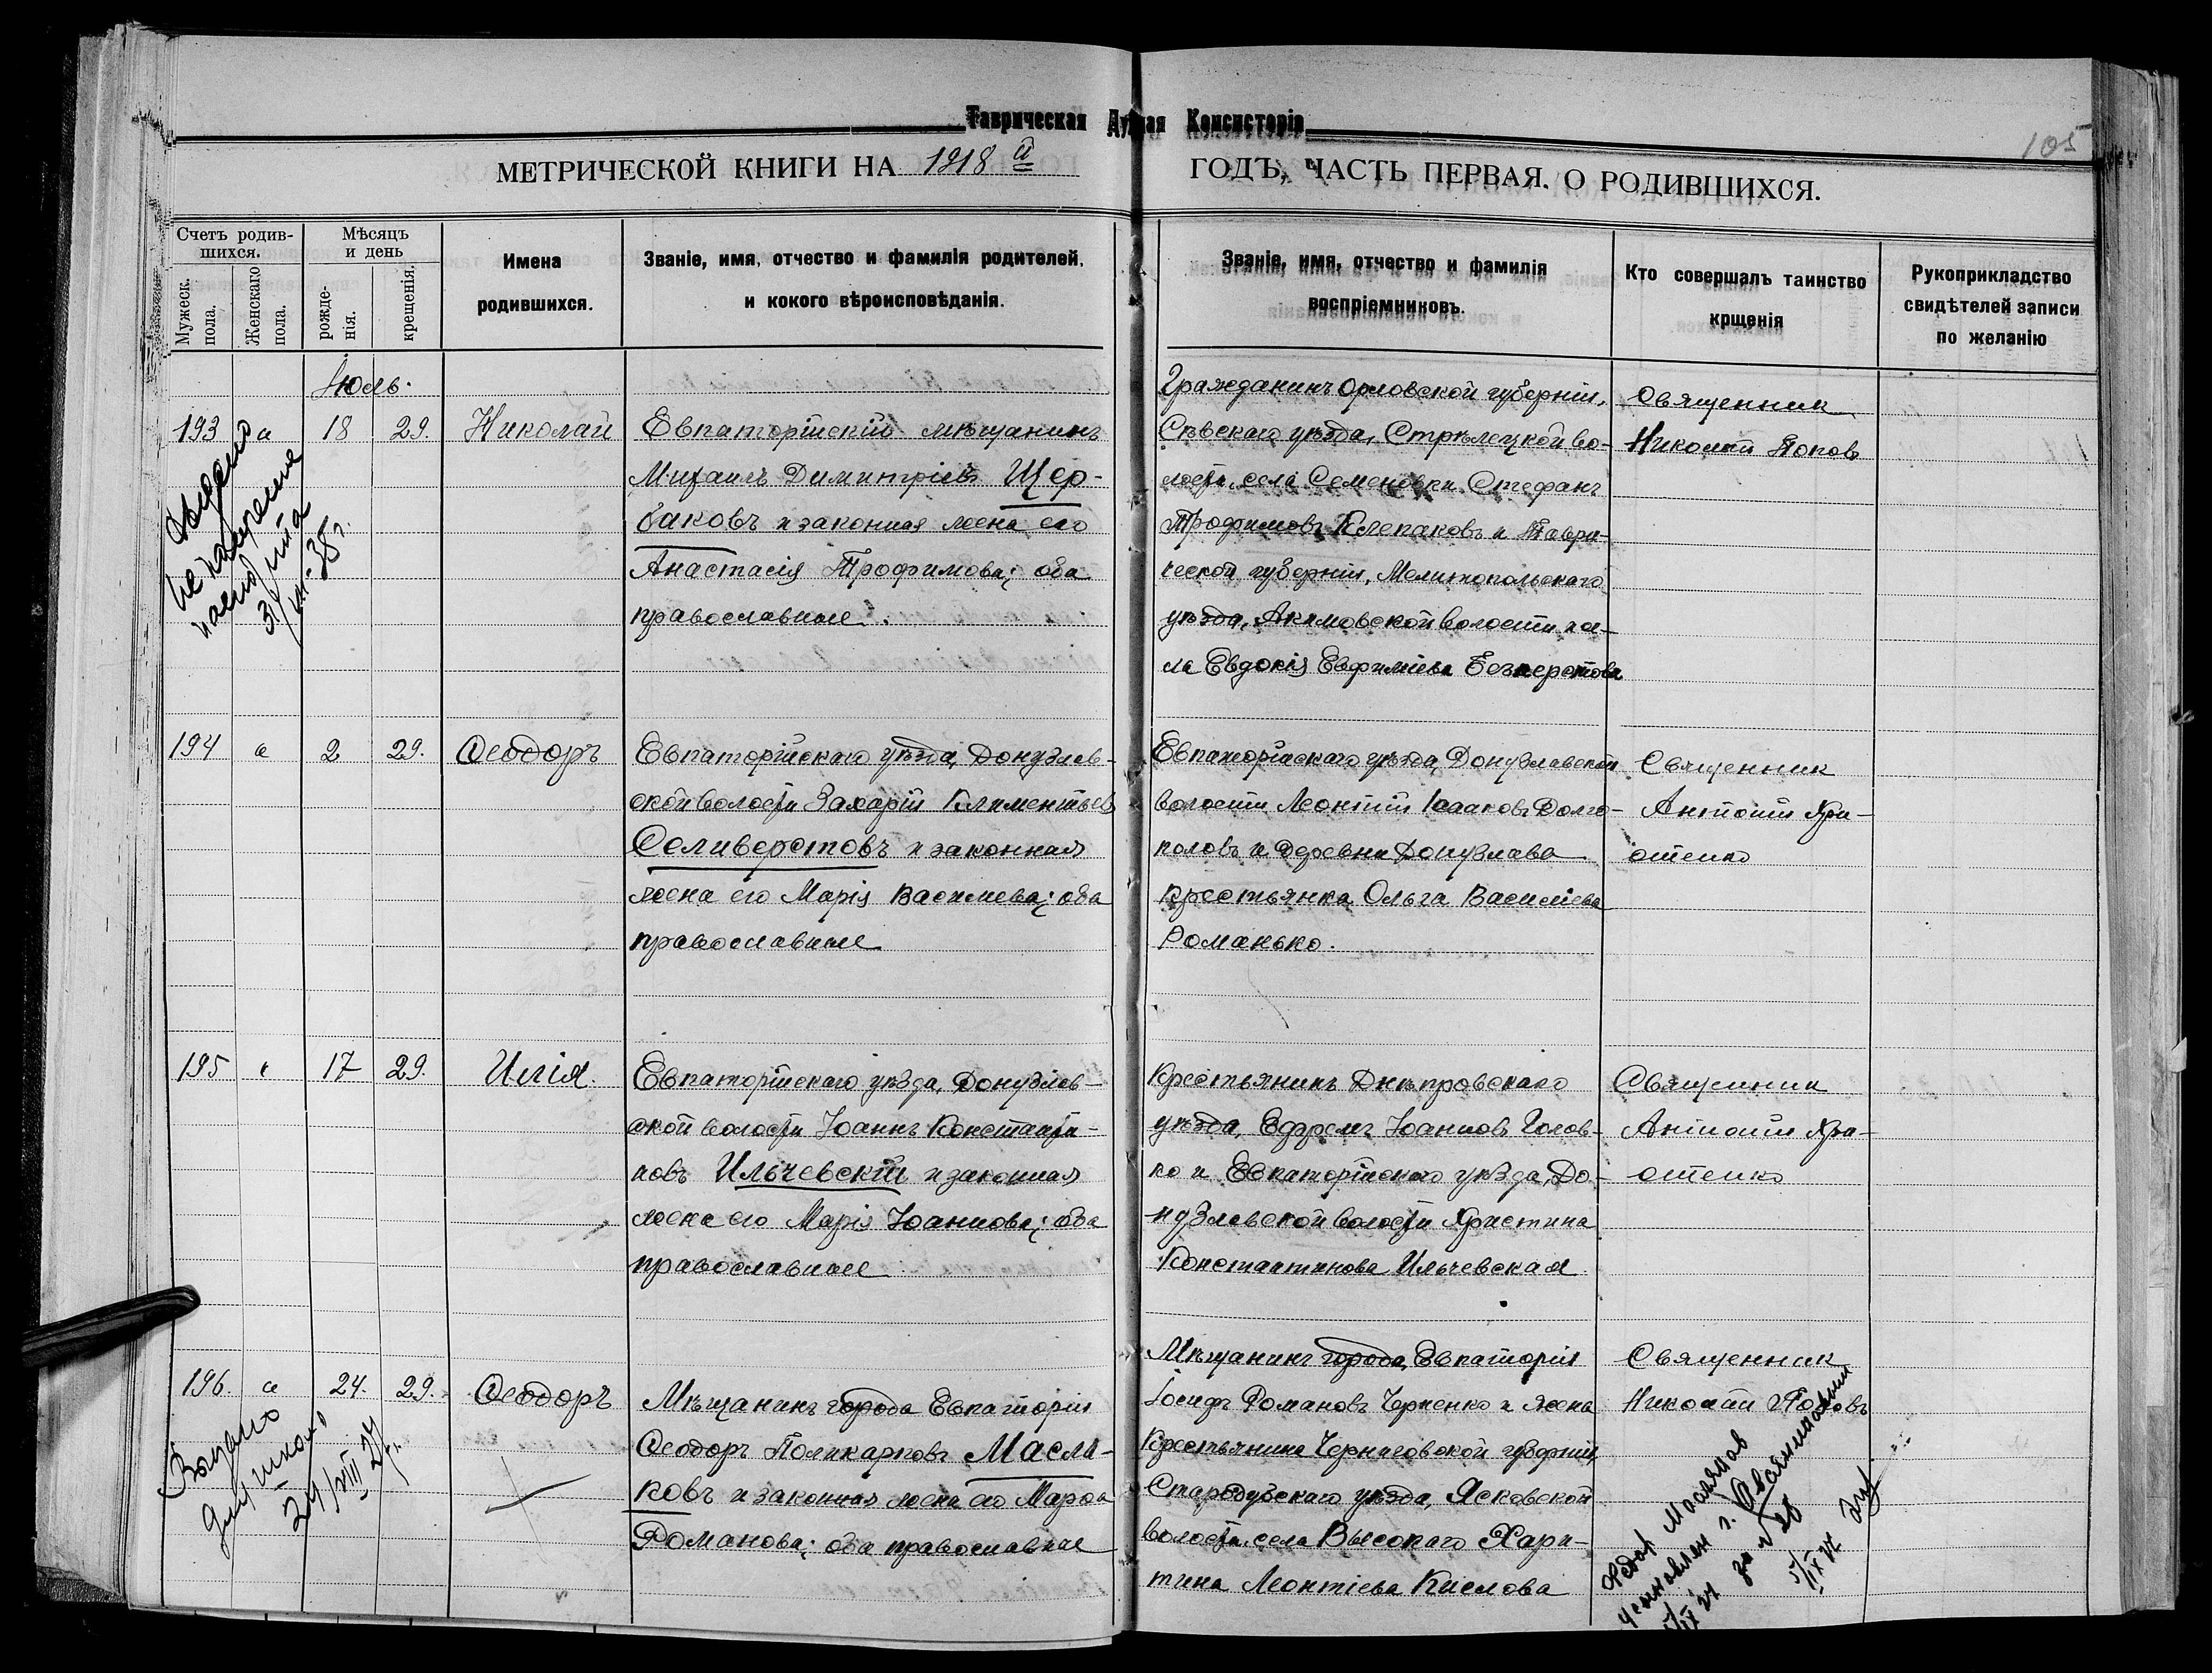 Таврическая Духная Консисторія
105
МЕТРИЧЕСКОЙ КНИГИ НА 1918 й ГОДЪ, ЧАСТЬ ПЕРВАЯ. О РОДИВШИХСЯ.
Счетъ родив-
шихся.
Мужеск.
пола.
Женскаго
пола.
Мѣсяцъ
и день
рожде-
нія.
крещенія.
Имена
родившихся.
Званіе, имя, отчество и фамилія родителей,
и кокого вѣроисповѣданія.
Званіе, имя, отчество и фамилія
воспріемниковъ.
Кто совершалъ таинство
крщенія
Рукоприкладство
свидѣтелей записи
по желанію
Июль.
193 " 18 29. Николай
Евпаторійскій мѣщанинъ
Михаилъ Димитріевъ Щер-
баковъ и законная жена его
Анастасія Трофимова; оба
православные.
Гражданинъ Орловской губерніи,
Сѣвскаго уѣзда, Стрѣлецкой во-
лости, села Семеновки Стефанъ
Трофимовъ Клепаковъ и Таври-
ческой губерніи, Мелитопольскаго
уѣзда, Акимовской волости и се-
ла Евдокія Евфиміева
Священник
Николай Попов
Выдано
31/VII-38г.
194 " 2 29. Ѳеодоръ
Евпаторійскаго уѣзда, Донузлав-
ской волости Захарій Климентьев
Селиверстовъ и законная
жена его Марія Василиева; оба
православные
Евпаторійскаго уѣзда, Донузлавской
волости Леонтій Исааковъ Долго-
половъ и деревни Донузлава
крестьянка Ольга Василиева
Романько.
Священник
Антоній Хри-
стенко
195 " 17 29. Илія.
Евпаторійскаго уѣзда, Донузлав-
ской волости Іоаннъ Константи-
новъ Ильчевскій и законная
жена его Марія Іоаннова; оба
православные
Крестьянинъ Днѣпровскаго
уѣзда, Ефремъ Іоанновъ Голов-
ко и Евпаторійскаго уѣзда, До-
нузлавской волости Христина
Константинова Ильчевская
Священник
Антоній Хри-
стенко
196. " 24. 29. Ѳеодоръ
Мѣщанинъ города Евпаторіи
Ѳеодоръ Поликарповъ Масля-
ковъ и законная жена его Марѳа
Романова; оба православные
Мѣщанинъ города Евпаторіи
Іосифъ Романовъ Черненко и жена
крестьянина Черниговской губерніи,
Стародубскаго уѣзда, Ясковской
волости, села Высокаго Хари-
тина Леонтіева Киселова
Священник
Николай Попов
Выдано
для школы
24/VIII 27г.
Федор Масляков
усыновлен г.
за № 26
5/IX 21